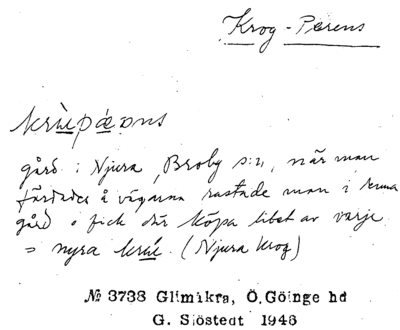 Krog-Pærens
krùepǽons
gård i Njura, Broby s:n, när man
färdades å vägarna rastade man i denna
gård o fick där köpa litet av varje
= njura krúe. (Njura krog)
№ 3738 Glimåkra, Ö. Göinge hd
G. Sjöstedt 1946